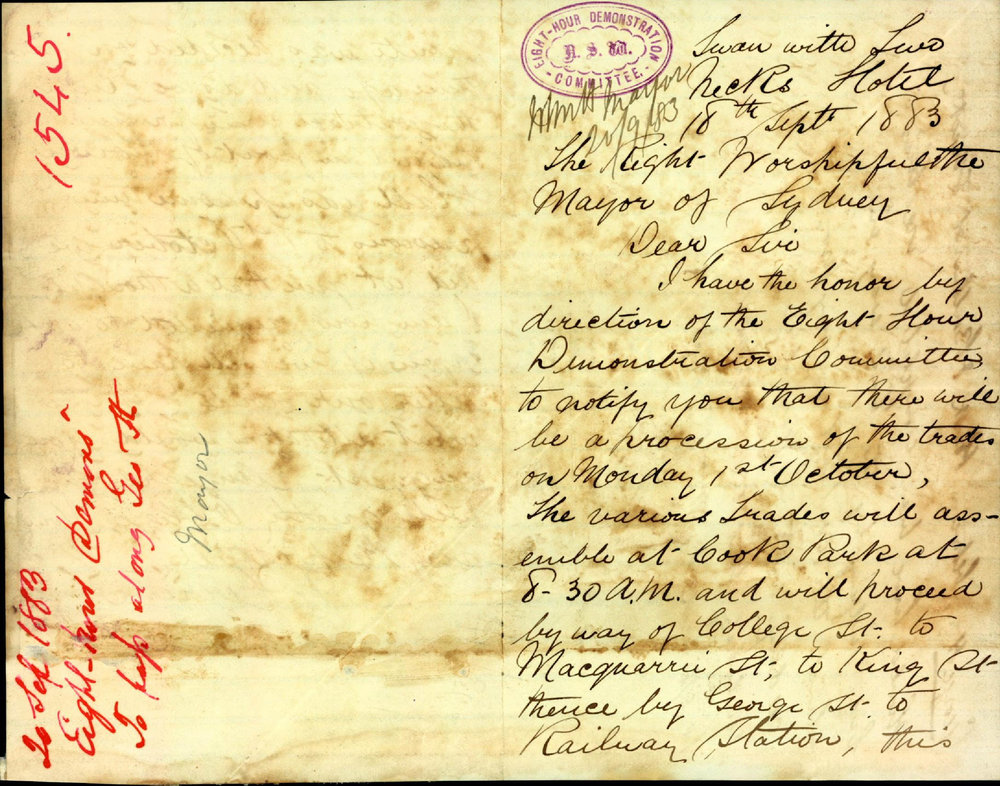 1545.
20 Sep 1883
Eight-hours Demons"
To pass along Geo St
Mayor
EIGHT-HOUR DEMONSTRATION
N. S. W.
COMMITTEE.
Mayor
20/9/83
Swan with Two
Necks Hotel
18th Septr 1883
The Right Worshipful the
Mayor of Sydney
Dear Sir
I have the honor by
direction of the Eight Hour
Demonstration Committee,
to notify you that there will
be a procession of the trades
on Monday 1st October,
The various Trades will ass-
emble at Cook Park at
8-30 A.M. and will proceed
by way of College St. to
Macquarrie St, to King St
thence by George St. to
Railway Station, this